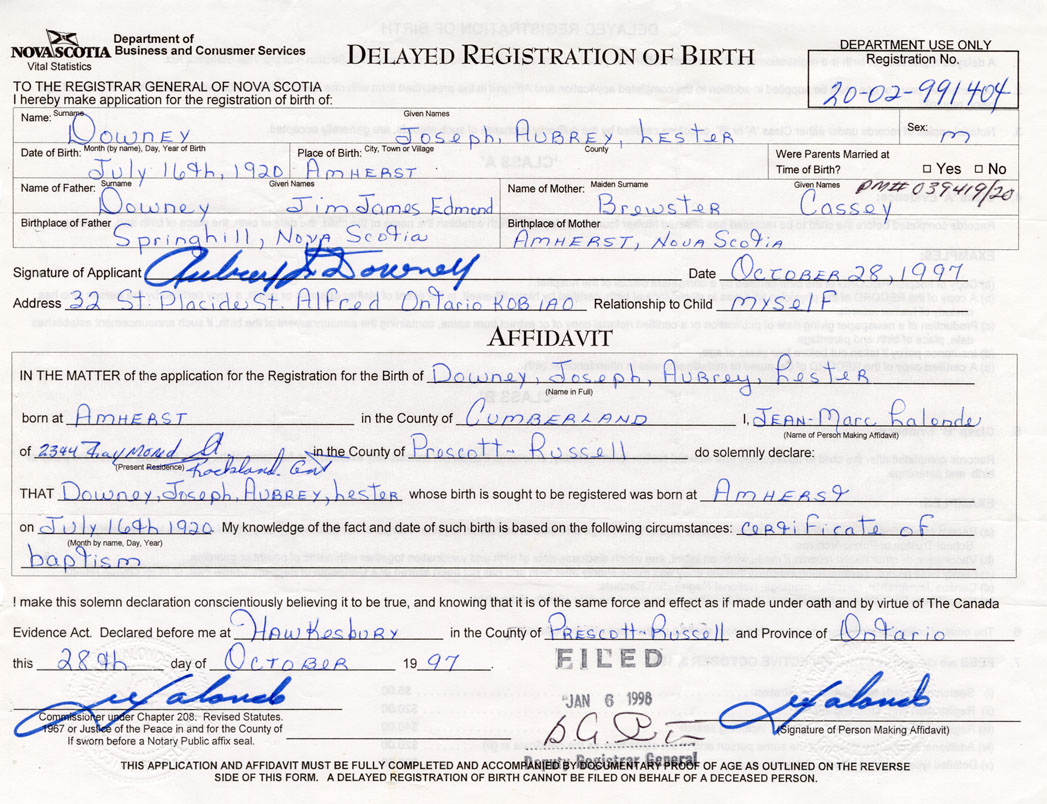 NOVA SCOTIA
Department of
Business and Conusmer Services
Vital Statistics
DELAYED REGISTRATION OF BIRTH
DEPARTMENT USE ONLY
Registration No.
20-02-991404
TO THE REGISTRAR GENERAL OF NOVA SCOTIA
I hereby make application for the registration of birth of:
Name: Surname Given Names Sex:
Downey Joseph, Aubrey, Lester m
Date of Birth: Month (by name), Day, Year of Birth Place of Birth: City, Town or Village County Were Parents Married at
July 16th, 1920 Amherst Time of Birth? □ Yes □ No
Name of Father: Surname Given Names Name of Mother: Maiden Surname Given Names PM# 039419/20
Downey Jim James Edmond Brewster Cassey
Birthplace of Father Birthplace of Mother
Springhill, Nova Scotia Amherst, Nova Scotia
Signature of Applicant Aubrey L Downey Date October 28, 1997
Address 32 St. Placide St. Alfred Ontario K0B 1A0 Relationship to Child myself
AFFIDAVIT
IN THE MATTER of the application for the Registration for the Birth of Downey, Joseph, Aubrey, Lester
(Name in Full)
born at Amherst in the County of Cumberland I, Jean-Marc Lalonde
(Name of Person Making Affidavit)
of 2344 Raymond St in the County of Prescott-Russell do solemnly declare:
(Present Residence) Rockland Ont
THAT Downey, Joseph, Aubrey, Lester whose birth is sought to be registered was born at Amherst
on July 16th 1920. My knowledge of the fact and date of such birth is based on the following circumstances: certificate of
(Month by name, Day, Year)
baptism
I make this solemn declaration conscientiously believing it to be true, and knowing that it is of the same force and effect as if made under oath and by virtue of The Canada
Evidence Act. Declared before me at Hawkesbury in the County of Prescott-Russell and Province of Ontario
this 28th day of October 19 97.
FILED
JAN 6 1998
Commissioner under Chapter 208. Revised Statutes.
1967 or Justice of the Peace in and for the County of
If sworn before a Notary Public affix seal.
(Signature of Person Making Affidavit)
Deputy Registrar General
THIS APPLICATION AND AFFIDAVIT MUST BE FULLY COMPLETED AND ACCOMPANIED BY DOCUMENTARY PROOF OF AGE AS OUTLINED ON THE REVERSE
SIDE OF THIS FORM. A DELAYED REGISTRATION OF BIRTH CANNOT BE FILED ON BEHALF OF A DECEASED PERSON.